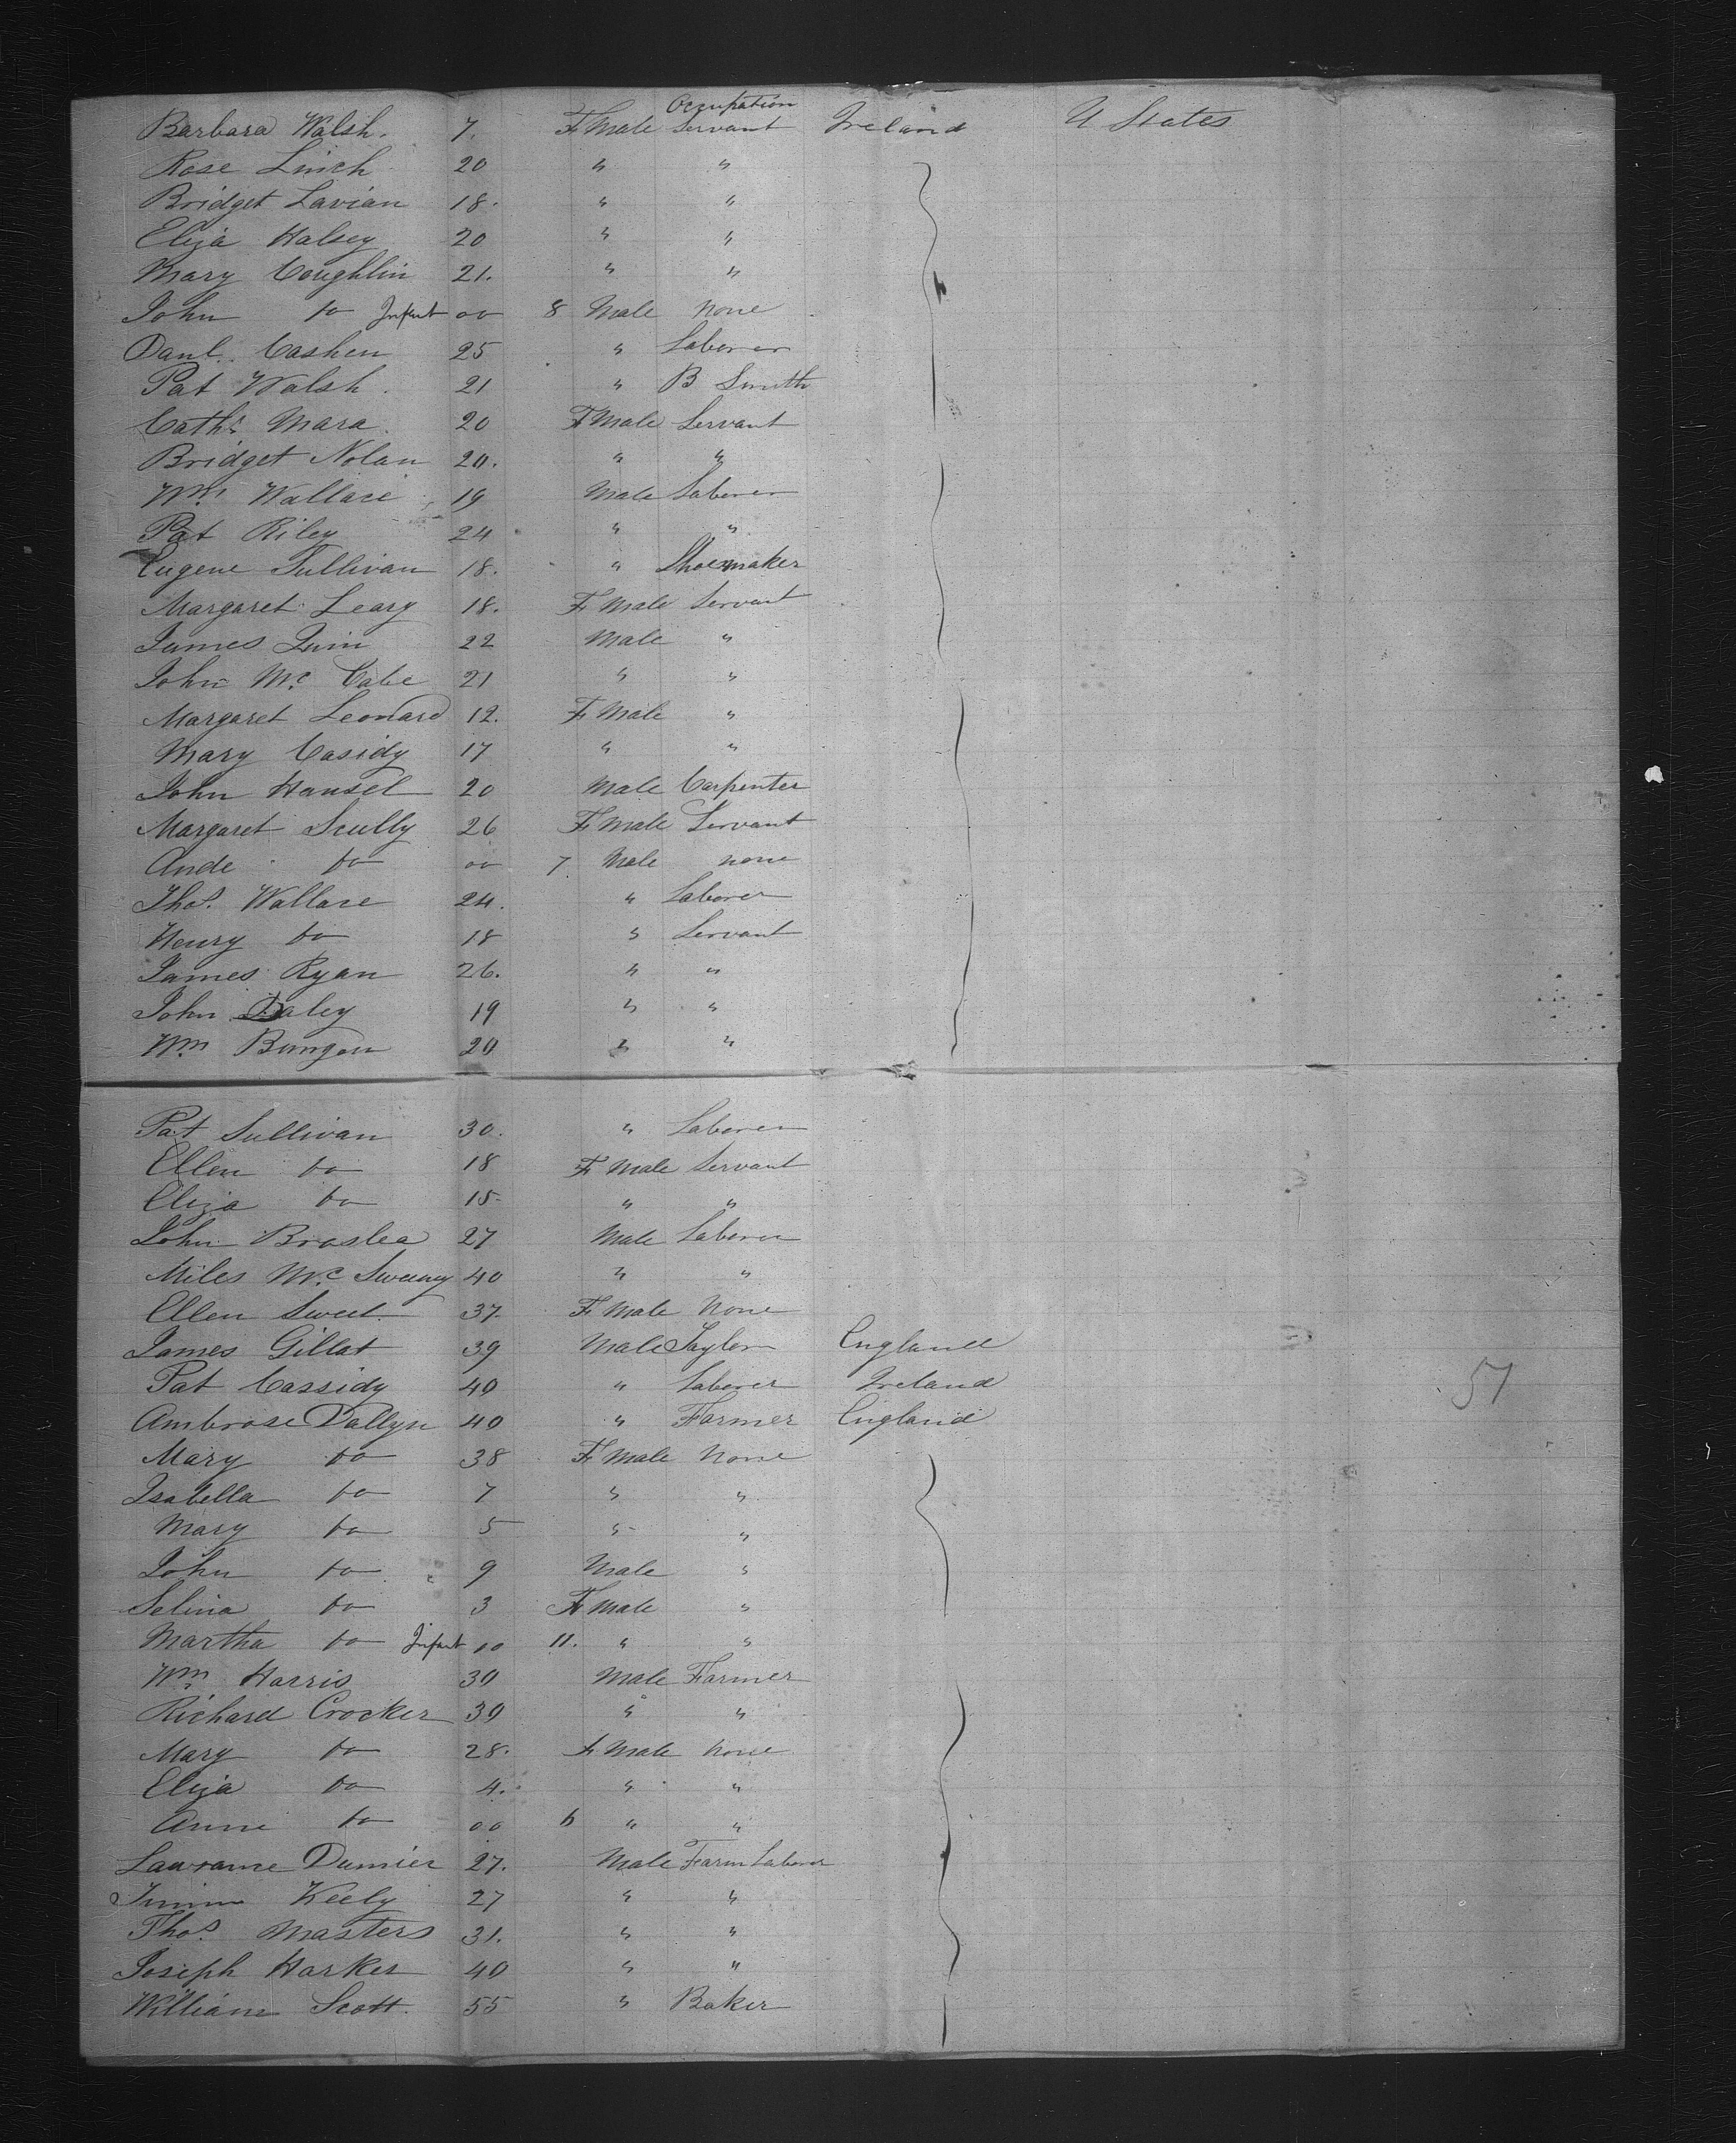 Occupation
Barbara Walsh. 7. F Male Servant Ireland U States
Rose Linch 20 " "
Bridget Lavian 18. " "
Eliza Halsey 20 " "
Mary Coughlin 21. " "
John do Infant 00 8 Male None
Danl. Cashen 25 " Laborer
Pat Walsh. 21 " B Smith
Cath: Mara. 20 F Male Servant
Bridget Nolan 20. " "
Wm. Wallace 19 Male Laborer
Pat Riley 24 " "
Eugene Sullivan 18. " Shoemaker
Margaret Leary 18. F Male Servant
James Quin 22 Male "
John Mc Cabe 21 " "
Margaret Leonard 12. F Male "
Mary Casidy 17 " "
John Hansel 20 Male Carpenter
Margaret Scully 26 F Male Servant
Ande do 00 7 Male none
Thos. Wallace 24. " Laborer
Henry do 18 " Servant
James Ryan 26. " "
John Daley 19 " "
Wm 20 " "
Pat Sullivan 30. " Laborer
Ellen do 18 F Male Servant
Eliza do 15 " "
John Braslea 27 Male Laborer
Miles Mc Sweeny 40 " "
Ellen Sweet. 37. F Male None
James Gillat 39 Male Taylor England
Pat Cassidy 40 " Laborer Ireland
Ambrose Dallyn 40 " Farmer England
Mary do 38 F Male None
Isabella do 7 " "
Mary do 5 " "
John do 9 Male "
Selina do 3 F Male "
Martha do Infant 10 11. " "
Wm Harris 30 Male Farmer
Richard Crocker 30 " "
Mary do 28. F Male None
Eliza do 4. " "
Anne do 00 6 " "
Lawrame Dumier 27. Male Farm Laborer
Keely 27 " "
Thos. Masters 31. " "
Joseph Harker 40 " "
William Scott. 55 " Baker
57